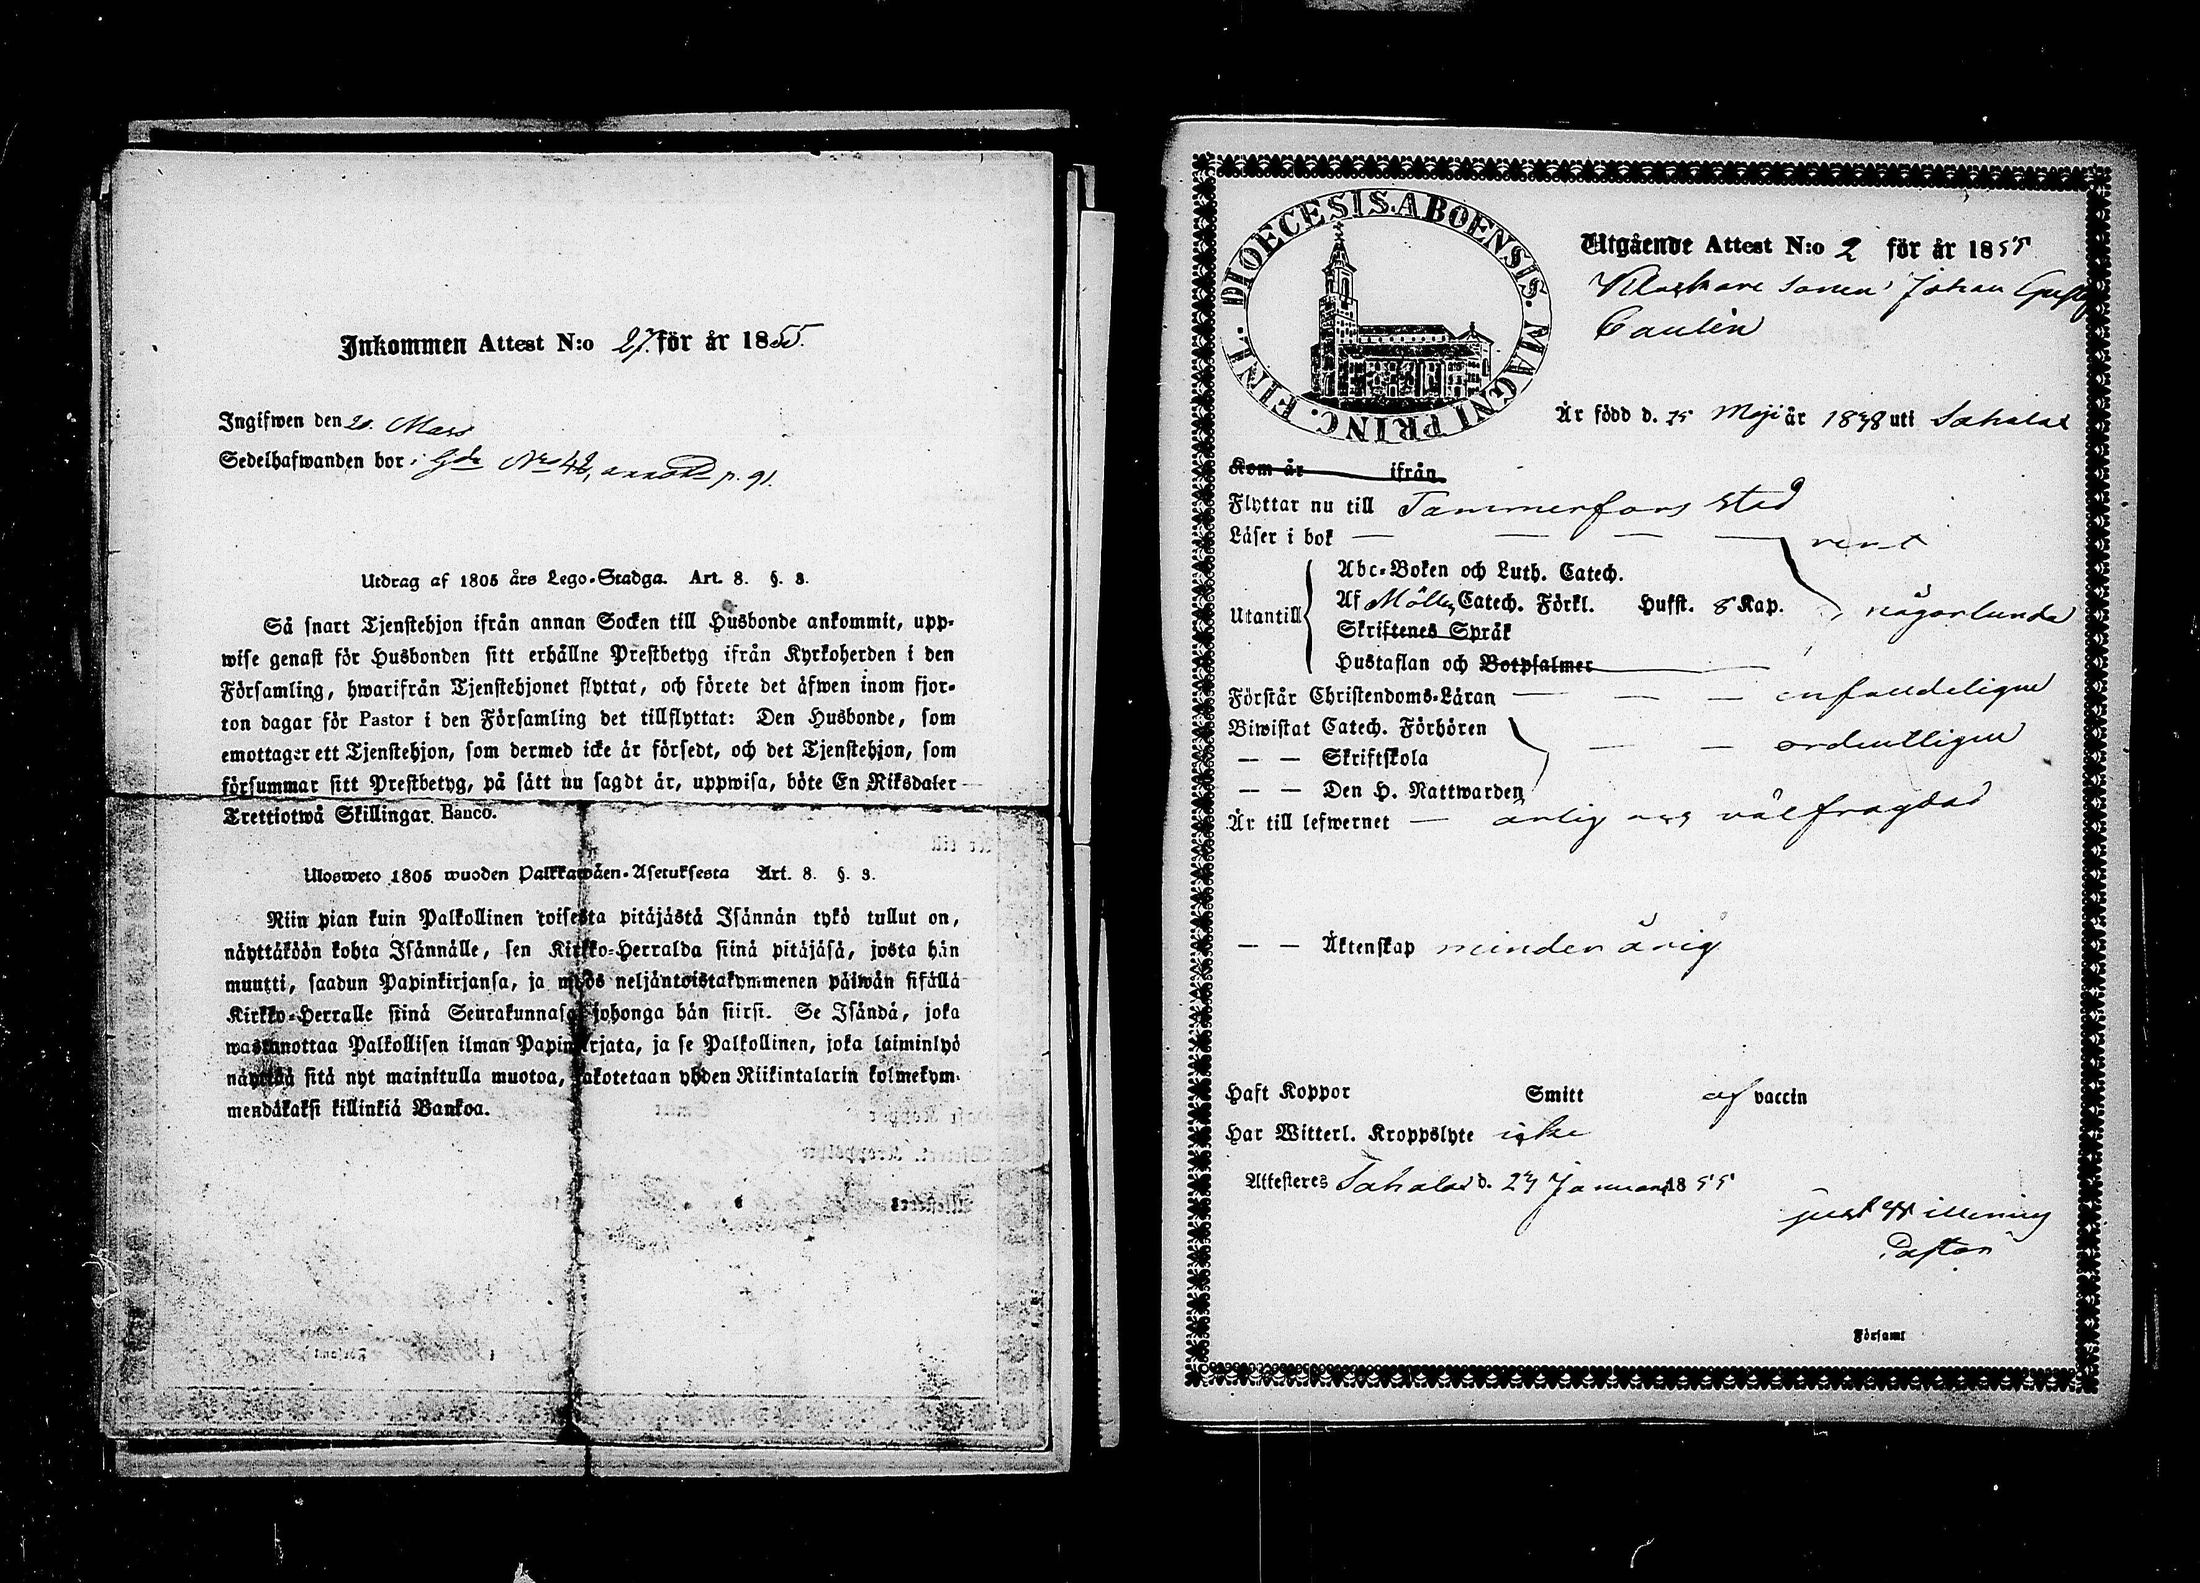 Inkommen Attest N:o 27. för år 1855.
Ingifwen den 20. Mars
Sedelhafwanden bor i Gdn Nro 42, p. 91.
Utdrag af 1805 års Lego-Stadga. Art. 8. §. 3.
Så snart Tjenstehjon ifrån annan Socken till Husbonde ankommit, upp-
wise genast för Husbonden sitt erhållne Prestbetyg ifrån Kyrkoherden i den
Församling, hwarifrån Tjenstehjonet flyttat, och förete det äfwen inom fjor-
ton dagar för Pastor i den Församling det tillflyttat: Den Husbonde, som
emottager ett Tjenstehjon, som dermed icke är försedt, och det Tjenstehjon, som
försummar sitt Prestbetyg, på sätt nu sagdt är, uppwisa, böte En Riksdaler
Trettiotwå Skillingar Banco.
Ulosweto 1805 wuoden Palkkawäen-Asetuksesta Art. 8. §. 3.
Niin pian kuin Palkollinen toisesta pitäjästä Isännän tykö tullut on,
näyttäköön kohta Isännälle, sen Kirkko-Herralda siinä pitäjäsä, josta hän
muutti, saadun Papinkirjansa, ja myös neljäntoistakymmenen päiwän sisällä
Kirkko-Herralle siinä Seurakunnasa johonga hän siirsi. Se Isändä, joka
wastanottaa Palkollisen ilman Papinkirjata, ja se Palkollinen, joka laiminlyö
näyttää sitä nyt mainitulla muotoa, sakotetaan yhden Riikintalarin kolmekym-
mendäkaksi killinkiä Bankoa.
DIOECESIS. ABOENSIS. MAGNI PRINC. FINL.
Utgående Attest N:o 2 för år 1855
Klockare sonen Johan Gustaf
Caulén
Är född d. 15 Maji år 1838 uti Sahalax
Kom år ifrån
Flyttar nu till Tammerfors stad
Läser i bok — — — — rent
Abc-Boken och Luth. Catech.
Utantill Af Möllers Catech. Förkl. Husst. 8 Kap. någorlunda
Skriftenes Språk
Hustaflan och Botpsalmer
Förstår Christendoms-Läran — — — enfaldeligen
Biwistat Catech. Förhören
— — Skriftskola — — ordentligen
— — Den H. Nattwarden
Är till lefwernet — ärlig och välfrägdad
— — Äktenskap minderårig
Haft Koppor Smitt af vaccin
Har Witterl. Kroppslyte icke
Attesteres Sahalax d. 23 Januari 1855
Pastor
Församl